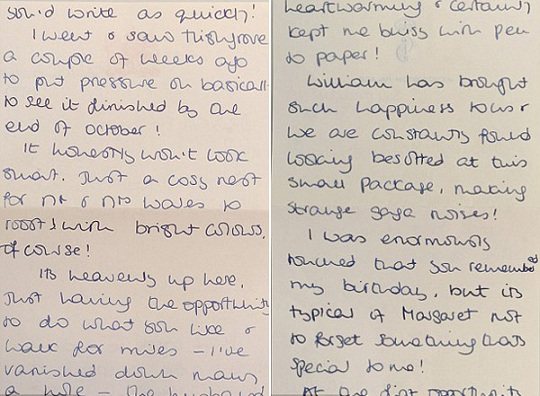 you'd write as quickly!
I went & saw Highgrove
a couple of weeks ago
to put pressure on basically
to see it finished by the
end of October!
It honestly won't look
smart. Just a cosy nest
for Mr & Mrs Wales to
roost! with bright colours,
of course!
Its heavenly up here,
just having the opportunity
to do what you like &
walk for miles - I've
vanished down many
a hole - the husband
heartwarming & certainly
kept me busy with pen
to paper!
William has brought
such happiness to us &
we are constantly found
looking besotted at this
small package, making
strange gaga noises!
I was enormously
touched that you remembered
my birthday, but its
typical of Margaret not
to forget something thats
special to me!
At the first opportunity